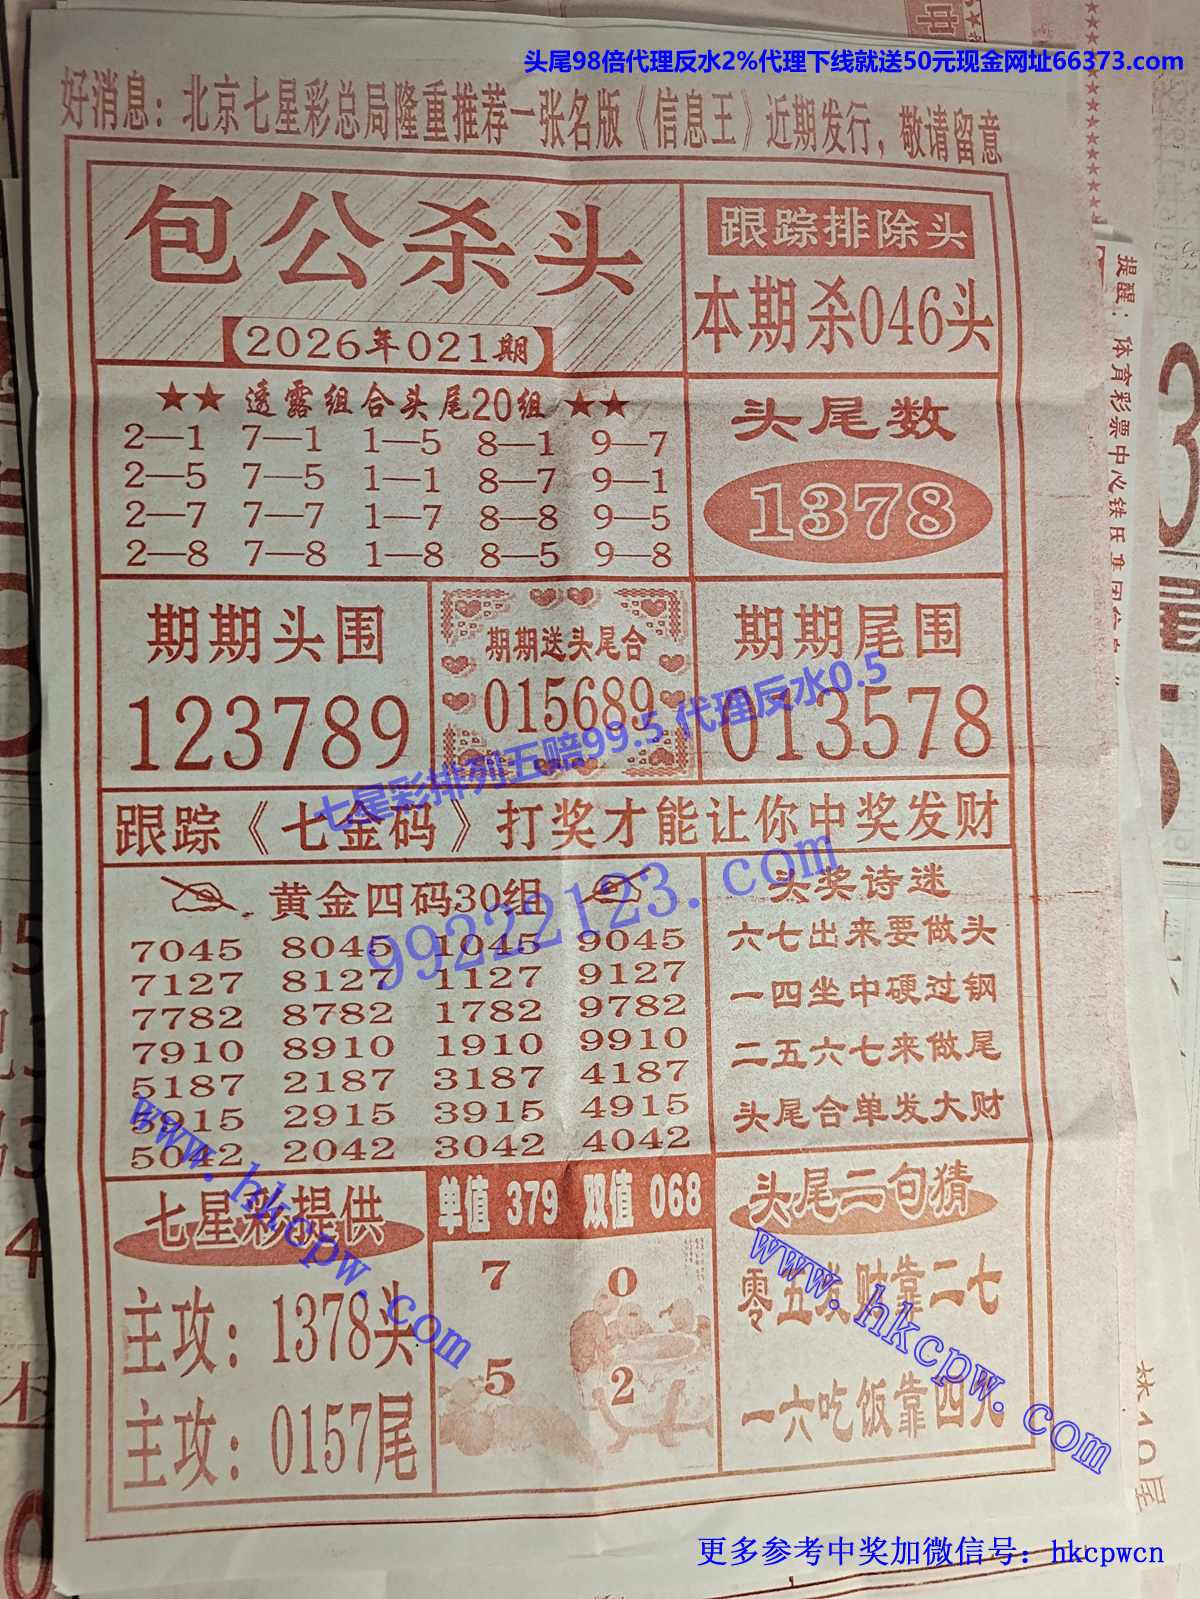 头尾98倍代理反水2%代理下线就送50元现金网址66373.com
好消息：北京七星彩总局隆重推荐一张名版《信息王》近期发行，敬请留意
包公杀头
2026年021期
跟踪排除头
本期杀046头
★★ 透露组合头尾20组 ★★
2—1 7—1 1—5 8—1 9—7
2—5 7—5 1—1 8—7 9—1
2—7 7—7 1—7 8—8 9—5
2—8 7—8 1—8 8—5 9—8
头尾数
1378
期期头围
123789
期期送头尾合
015689
期期尾围
013578
七星彩排列五赔99.5 代理反水0.5
跟踪《七金码》打奖才能让你中奖发财
99222123.com
黄金四码30组
7045 8045 1045 9045
7127 8127 1127 9127
7782 8782 1782 9782
7910 8910 1910 9910
5187 2187 3187 4187
5915 2915 3915 4915
5042 2042 3042 4042
头奖诗迷
六七出来要做头
一四坐中硬过钢
二五六七来做尾
头尾合单发大财
www.hkcpw.com
七星彩提供
主攻：1378头
主攻：0157尾
单值 379 双值 068
7 0
5 2
头尾二句猜
零五发财靠二七
一六吃饭靠四九
www.hkcpw.com
提醒：体育彩票中心铁
3
更多参考中奖加微信号：hkcpwcn